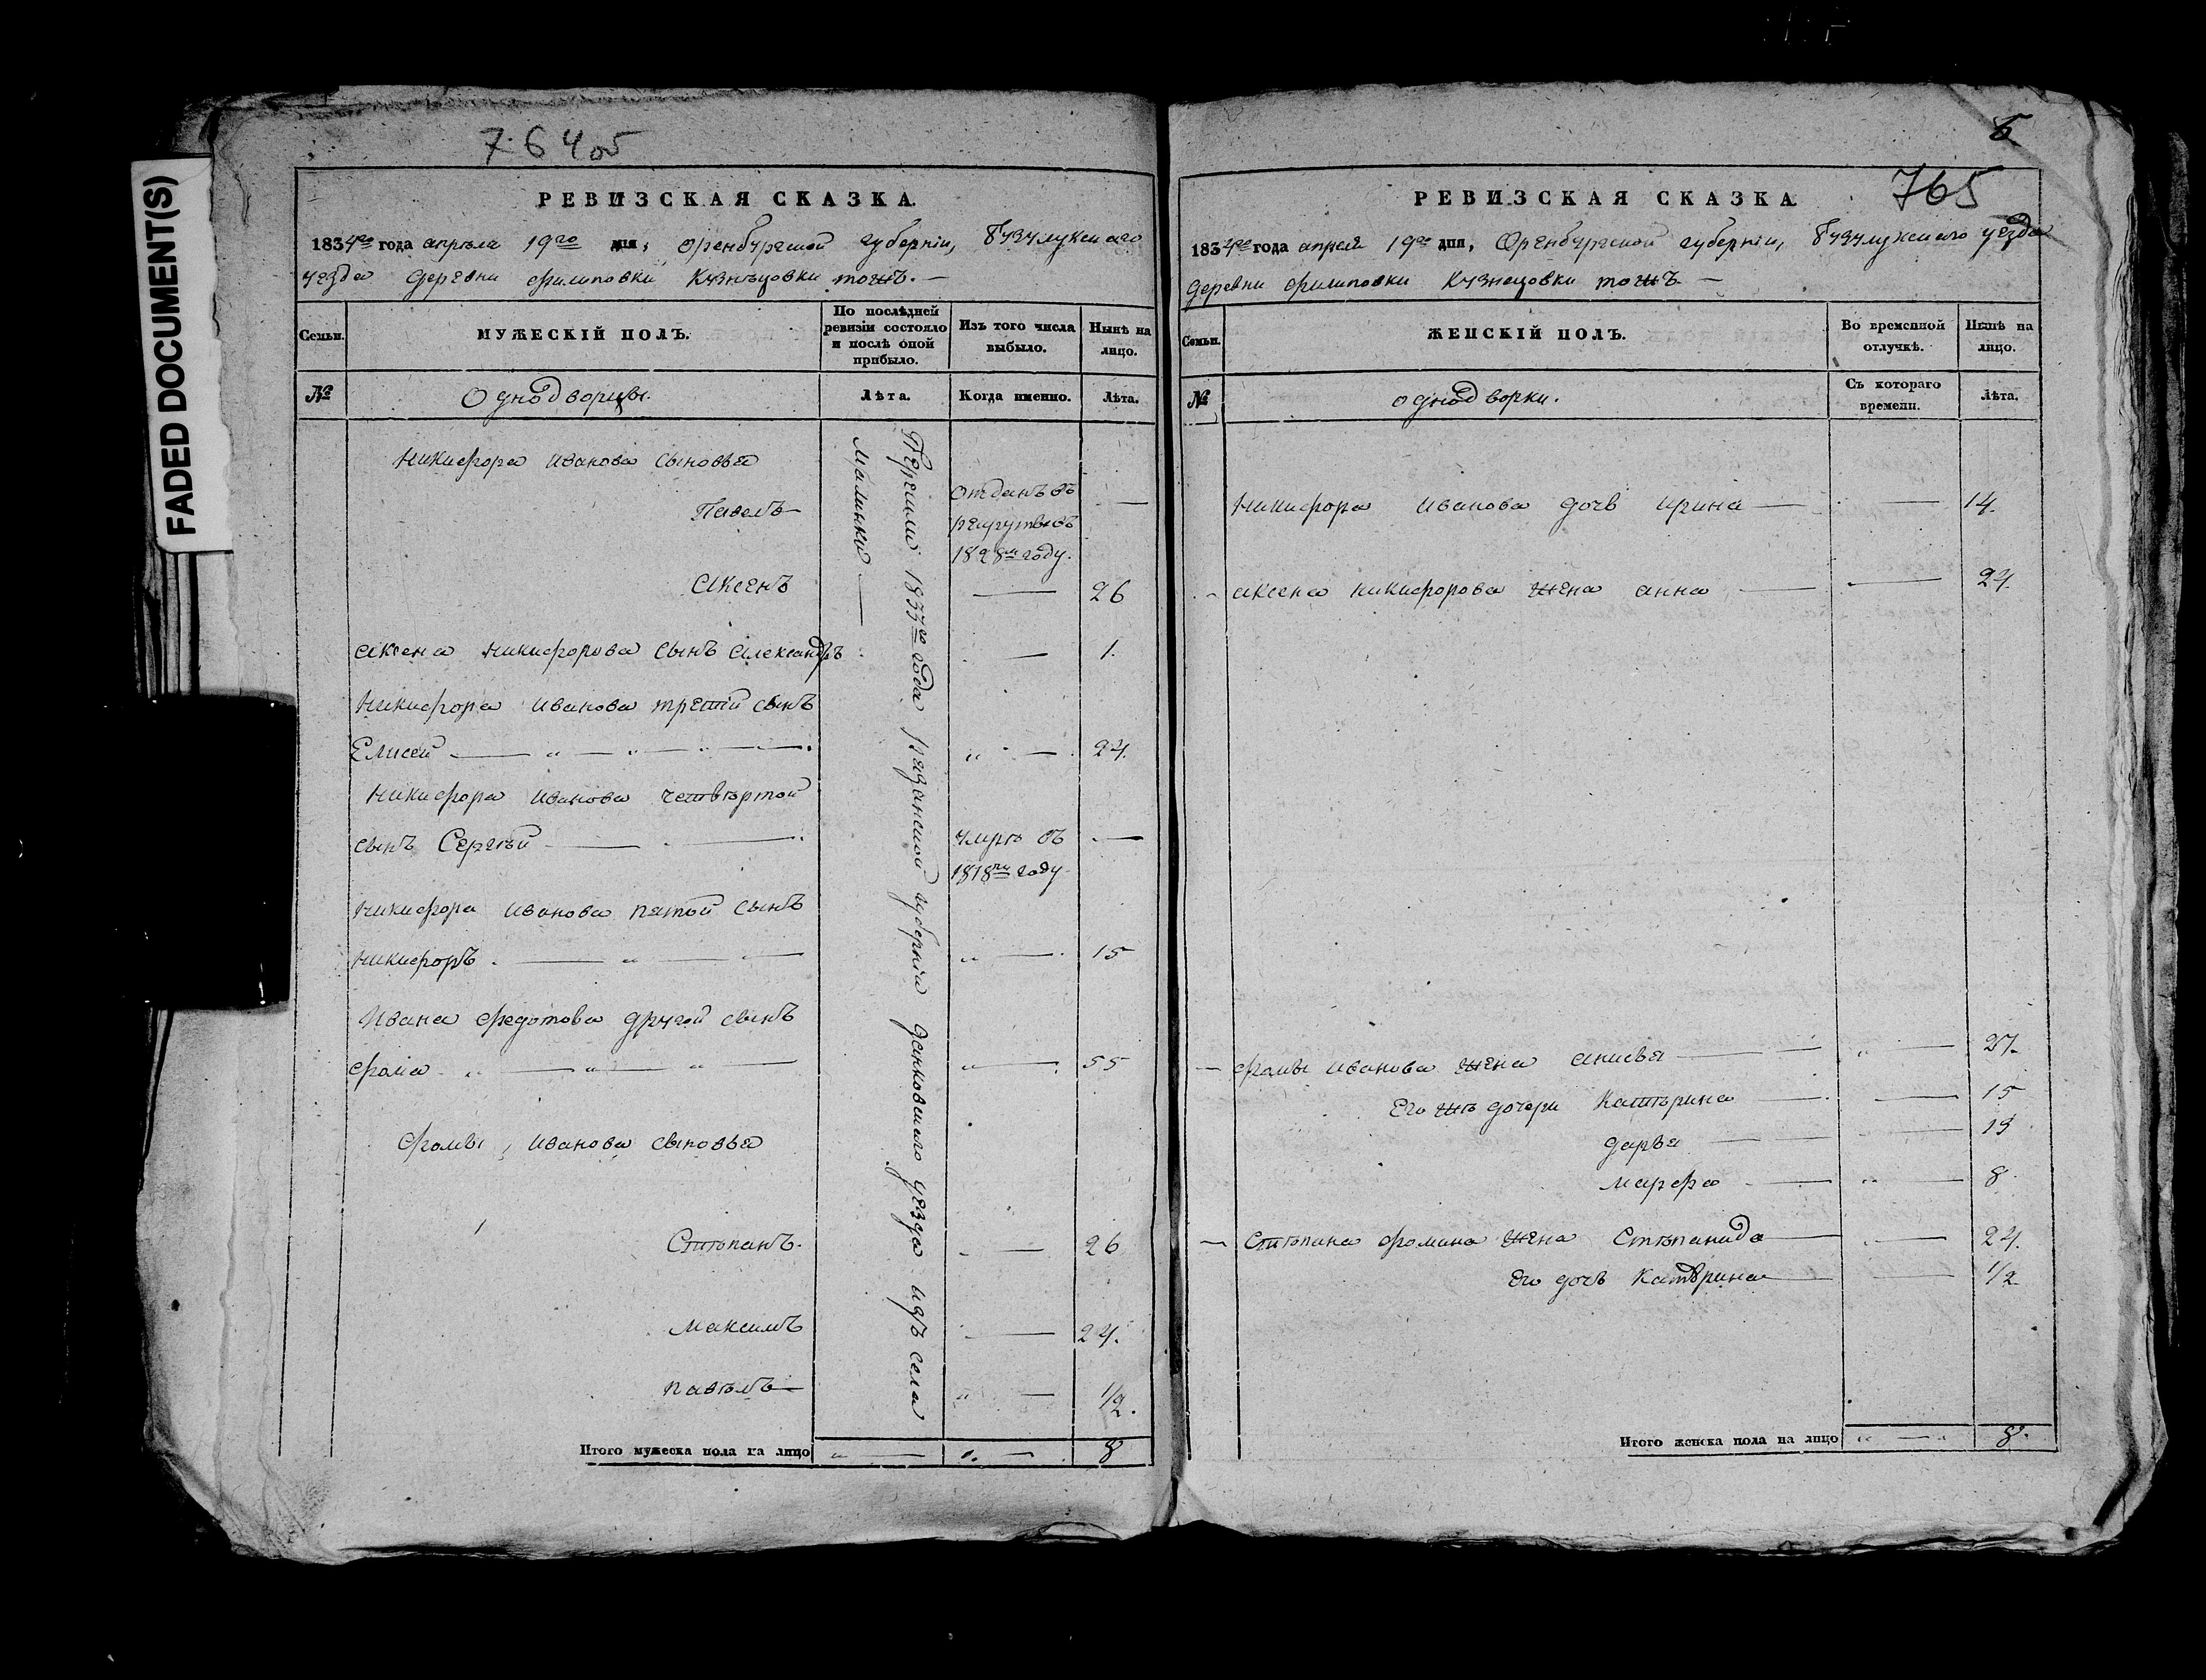 FADED DOCUMENT(S)
764 об
РЕВИЗСКАЯ СКАЗКА.
1834го года апреля 19го дня, Оренбургской губернии, Бузулукскаго
уезда деревни Филиповки Кузнецовки тожъ. —
Семьи.
МУЖЕСКІЙ ПОЛЪ.
По послѣдней ревизіи состояло и послѣ оной прибыло.
Изъ того числа выбыло.
Нынѣ на лицо.
№
Однодворцы.
Лѣта.
Когда именно.
Лѣта.
Перешли 1833го года рязанской губерніи данковскаго уезда изъ села
Малинки
Никифора Иванова сыновья
Павелъ
Отданъ въ рекруты въ 1828м году.
Аксенъ — 26
Аксена Никифорова сынъ Александръ — 1.
Никифора Иванова третій сынъ
Елисей — 24.
Никифора Иванова четвертой
сынъ Сергей — умре въ 1818м году
Никифора Иванова пятой сынъ
Никифоръ — 15
Ивана Федотова другой сынъ
Фома — 55
Фомы Иванова сыновья
Степанъ — 26
Максимъ — 24.
Павелъ — 1/2.
Итого мужеска пола на лицо 8
5
765
РЕВИЗСКАЯ СКАЗКА
1834го года апреля 19го дня, Оренбургской губерніи, Бузулукскаго уезда
деревни Филиповки Кузнецовки тожъ —
Семьи.
ЖЕНСКІЙ ПОЛЪ.
Во временной отлучкѣ.
Нынѣ на лицо.
№
однодворки.
Съ котораго времени.
Лѣта.
Никифора Иванова дочь Ирина — 14.
Аксена Никифорова жена Анна — 24.
Фомы Иванова жена Анисья — 27.
Его же дочери Катерина — 15
Дарья — 13
Марфа — 8.
Степана Фомина жена Степанида — 24.
Его дочь Катерина — 1/2
Итого женска пола на лицо 8.